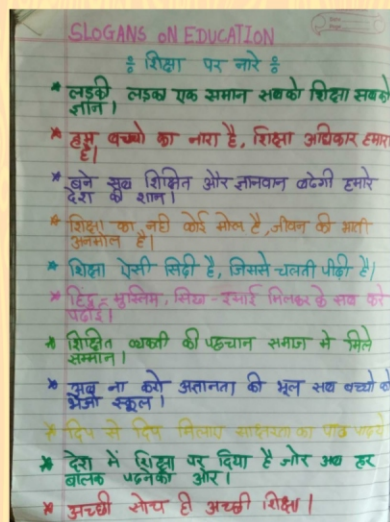 SLOGANS ON EDUCATION
शिक्षा पर नारे
* लडकी लडका एक समान सबको शिक्षा सबको
ज्ञान।
* हम बच्चो का नारा है, शिक्षा अधिकार हमारा
है।
* बने सब शिक्षित और ज्ञानवान बढेगी हमारे
देश की शान।
* शिक्षा का नही कोई मोल है, जीवन की भाती
अनमोल है।
* शिक्षा ऐसी सिढी है, जिससे चलती पीढी है।
* हिंदू - मुस्लिम, सिख - इसाई मिलकर के सब करे
पढाई।
* शिक्षित व्यक्ती की पहचान समाज मे मिले
सम्मान।
* अब ना करो अज्ञानता की भूल सब बच्चो को
भेजो स्कूल।
* दिप से दिप मिलाए साक्षरता का पाठ
* देश में शिक्षा पर दिया है जोर अब हर
बालक पढनेकी ओर।
* अच्छी सोच ही अच्छी शिक्षा।